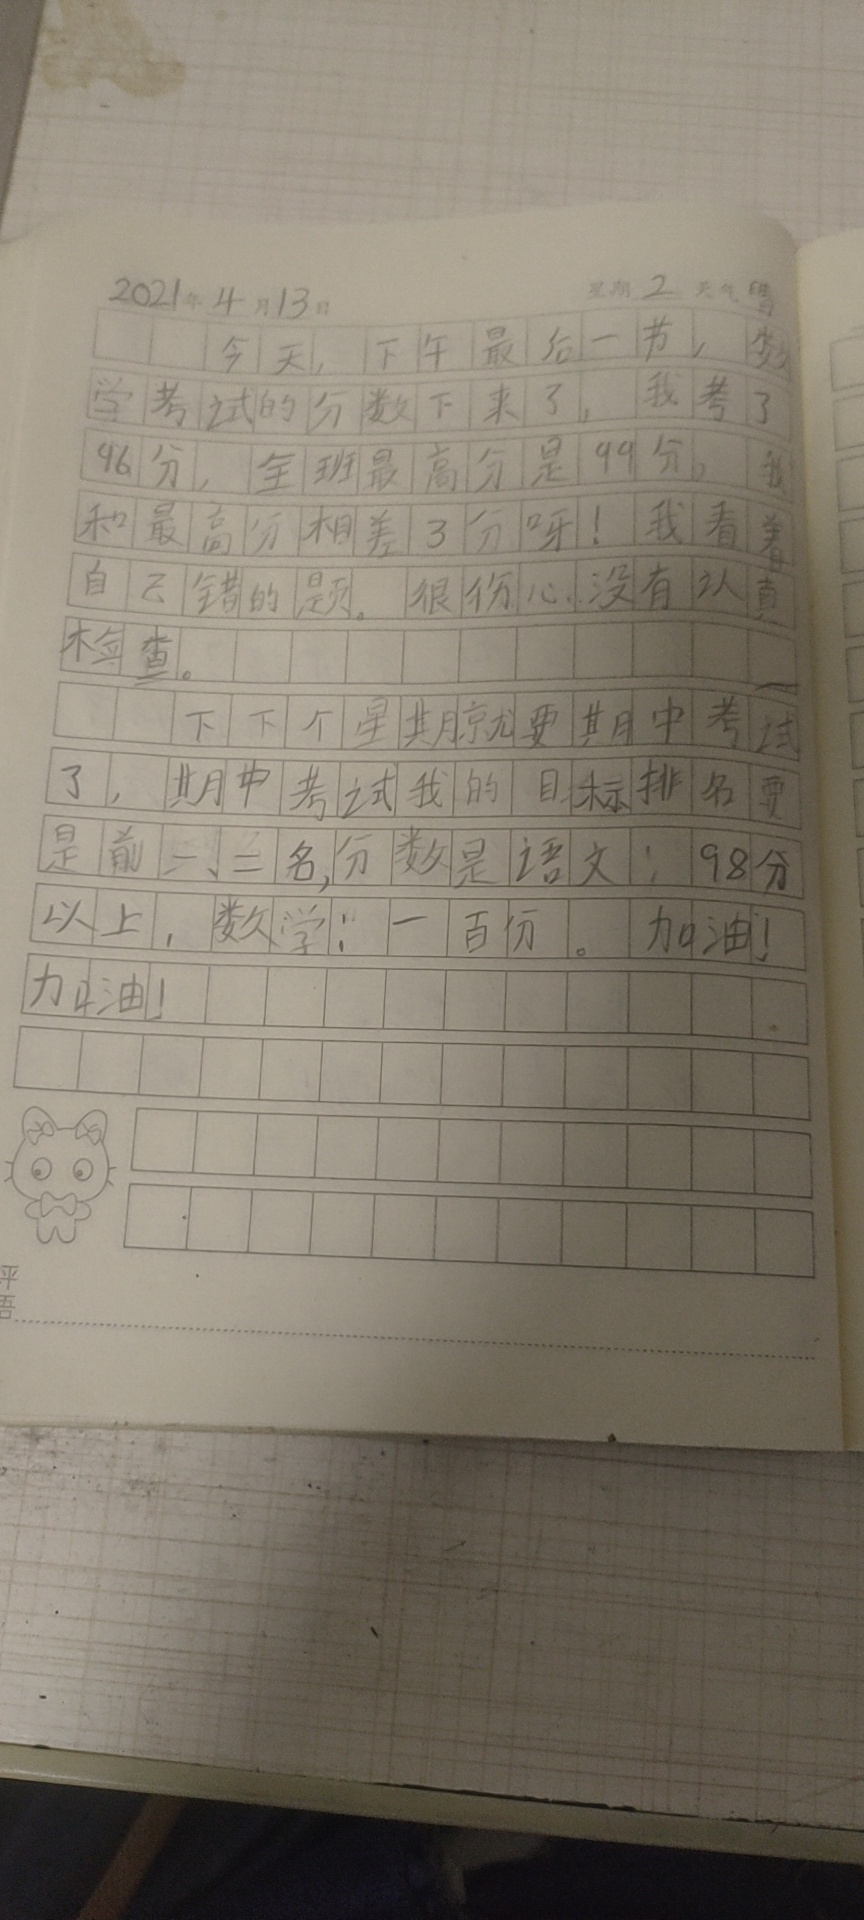 2021年4月13日 星期2 天气晴
今天,下午最后一节,数
学考试的分数下来了,我考了
96分,全班最高分是99分,我
和最高分相差3分呀!我看着
自己错的题。很伤心,没有认真
检查。
下下个星期就要期中考试
了,期中考试我的目标排名要
是前一、二名,分数是语文:98分
以上,数学:一百份。加油!
加油!
评语